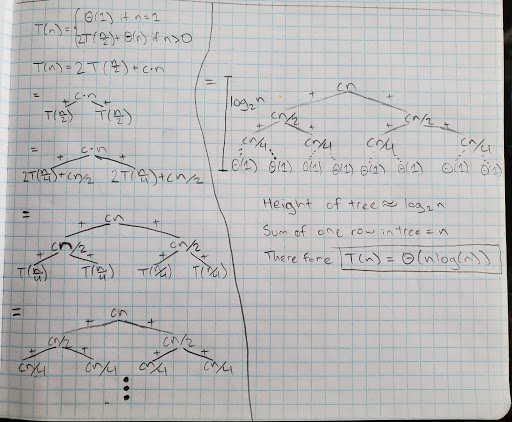 T(n) = { Θ(1) if n=1
2T(n/2) + Θ(n) if n>0
T(n) = 2T(n/2) + c·n
= c·n
+ +
T(n/2) T(n/2)
= c·n
+ +
2T(n/4)+cn/2 2T(n/4)+cn/2
= cn
+ +
cn/2 cn/2
+ + + +
T(n/4) T(n/4) T(n/4) T(n/4)
= cn
+ +
cn/2 cn/2
+ + + +
cn/4 cn/4 cn/4 cn/4
= log₂n cn
+ +
cn/2 cn/2
+ + + +
cn/4 cn/4 cn/4 cn/4
Θ(1) Θ(1) Θ(1) Θ(1) Θ(1) Θ(1) Θ(1) Θ(1)
Height of tree ≈ log₂n
Sum of one row in tree = n
Therefore T(n) = Θ(nlog(n))